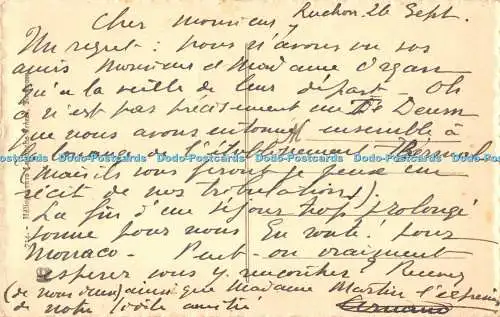 Luchon 26 Sept.
Cher Monsieur
Un regret : nous n'avons vu vos
amis Monsieur et Madame Organ
qu'à la veille de leur départ - Oh
ce n'est pas précisément un Te Deum
que nous avons entonné ensemble à
la louange de l'établissement Thermal
(Mais ils vous feront je pense un
récit de nos tribulations).
La fin d'un séjour trop prolongé
sonne pour nous. En route ! pour
Monaco - Peut-on vraiment
espérer vous y rencontrer ? Recevez
(de nous deux) ainsi que Madame Martin l'expression
de notre amitié
Dodo-Postcards Dodo-Postcards Dodo-Postcards Dodo-Postcards Dodo-Postcards